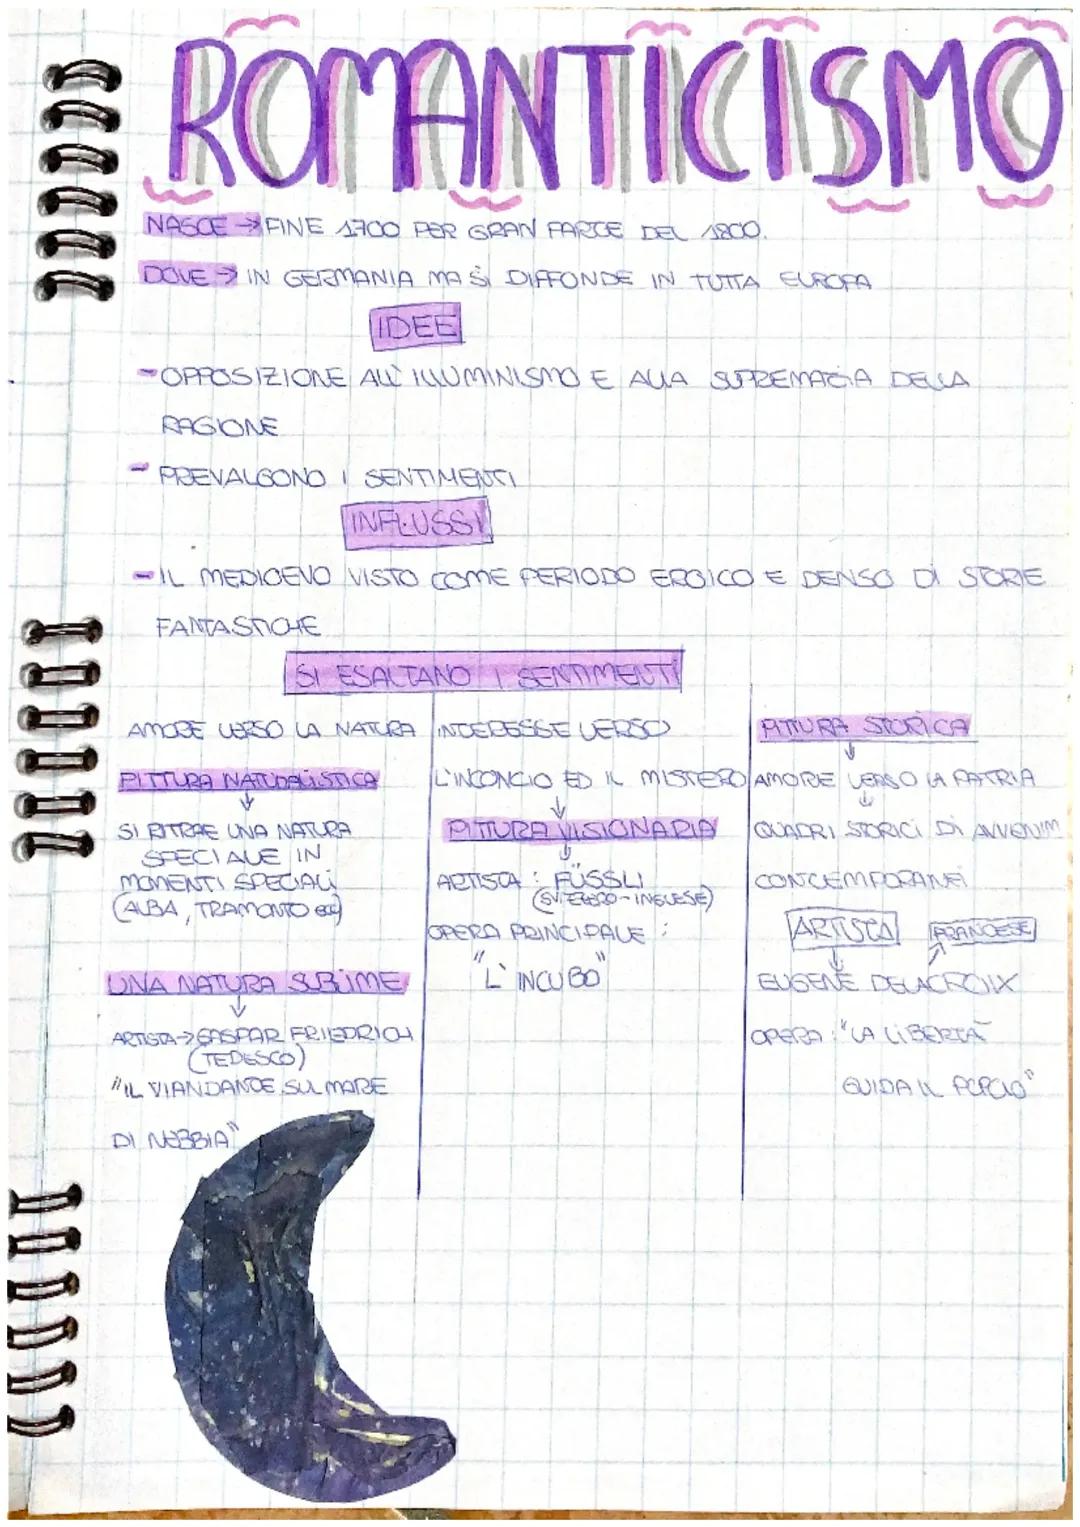 ROMANTICISMO
NASCE → FINE 1700 PER GRAN PARTE DEL 1800.
DOVE → IN GERMANIA MA SI DIFFONDE IN TUTTA EUROPA
IDEE
- OPPOSIZIONE ALL'ILLUMINISMO E ALLA SUPREMAZIA DELLA
RAGIONE
- PREVALGONO I SENTIMENTI
INFLUSSI
- IL MEDIOEVO VISTO COME PERIODO EROICO E DENSO DI STORIE
FANTASTICHE
SI ESALTANO I SENTIMENTI
AMORE VERSO LA NATURA
PITTURA NATURALISTICA
↓
SI RITRAE UNA NATURA
SPECIALE IN
MOMENTI SPECIALI
(ALBA, TRAMONTO ecc)
UNA NATURA SUBLIME
↓
ARTISTA → GASPAR FRIEDRICH
(TEDESCO)
"IL VIANDANTE SUL MARE
DI NEBBIA"
INTERESSE VERSO
L'INCONCIO ED IL MISTERO
↓
PITTURA VISIONARIA
↓
ARTISTA: FÜSSLI
(SVIZZERO-INGLESE)
OPERA PRINCIPALE:
"L'INCUBO"
PITTURA STORICA
↓
AMORE VERSO LA PATRIA
↓
QUADRI STORICI DI AVVENIM
CONTEMPORANEI
ARTISTA FRANCESE
↓
EUGENE DELACROIX
OPERA: "LA LIBERTÀ
GUIDA IL POPOLO"